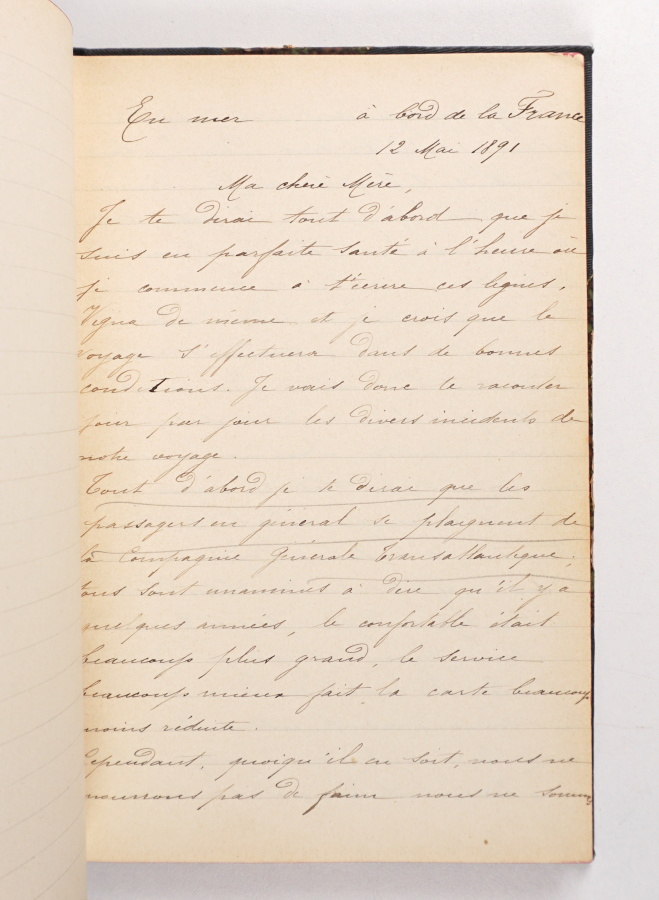 En mer à bord de la France
12 Mai 1891
Ma chère Mère,
Je te dirai tout d'abord que je
suis en parfaite santé à l'heure où
je commence à t'écrire ces lignes.
Vigna de même et je crois que le
voyage s'effectuera dans de bonnes
conditions. Je vais donc te raconter
jour par jour les divers incidents de
notre voyage.
Tout d'abord je te dirai que les
passagers en général se plaignent de
la Compagnie Générale Transatlantique;
tous sont unanimes à dire qu'il y a
quelques années, le confortable était
beaucoup plus grand, le service
beaucoup mieux fait, la carte beaucoup
moins réduite.
Cependant, quoiqu'il en soit, nous ne
mourrons pas de faim nous ne sommes